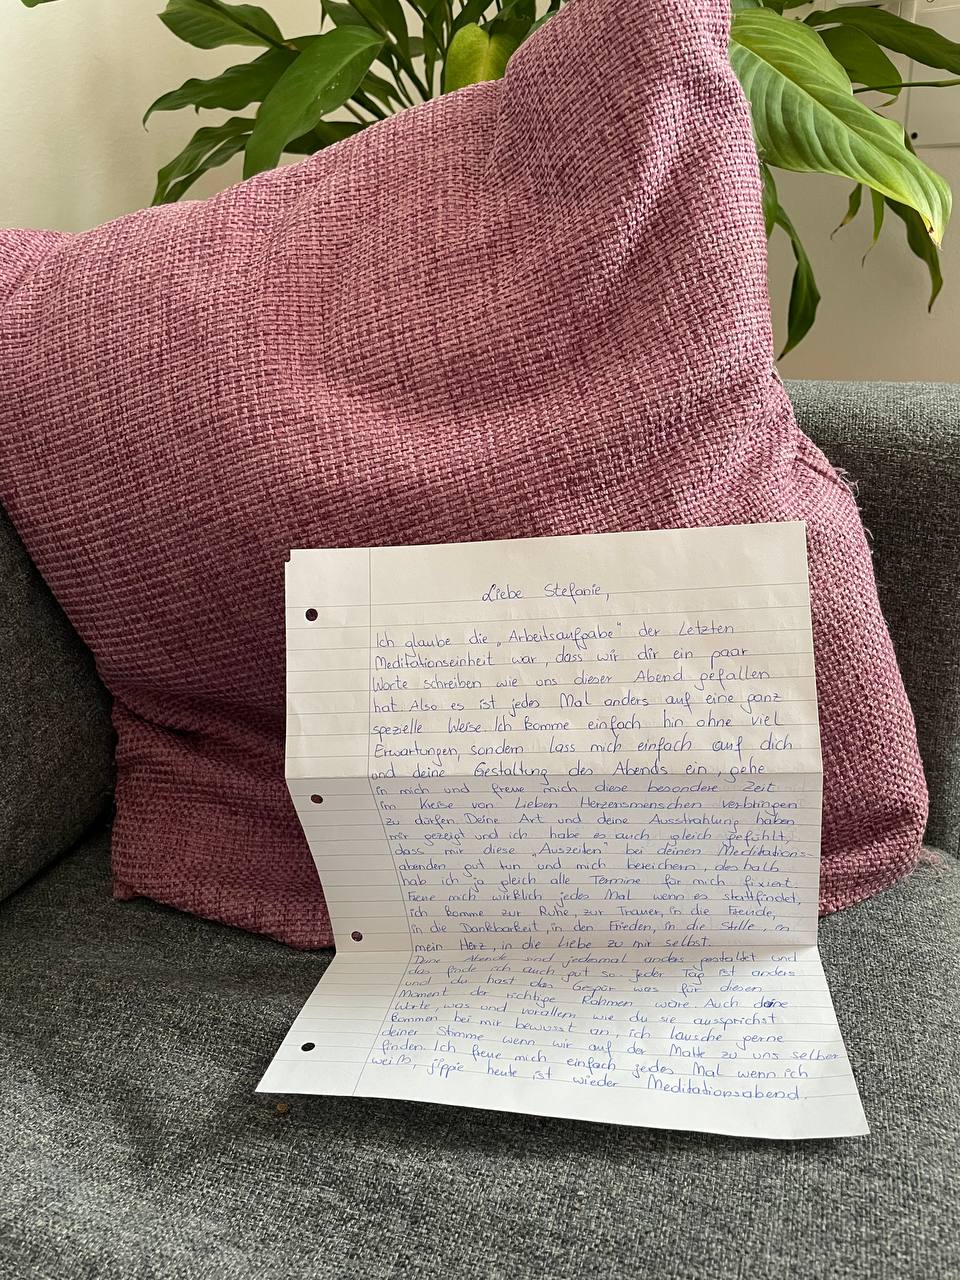 Liebe Stefanie,
Ich glaube die „Arbeitsaufgabe" der Letzten
Meditationseinheit war, dass wir dir ein paar
Worte schreiben wie uns dieser Abend gefallen
hat. Also es ist jedes Mal anders auf eine ganz
spezielle Weise. Ich komme einfach hin ohne viel
Erwartungen, sondern lass mich einfach auf dich
und deine Gestaltung des Abends ein, gehe
in mich und freue mich diese besondere Zeit
im Kreise von Lieben Herzensmenschen verbringen
zu dürfen. Deine Art und deine Ausstrahlung haben
mir gezeigt und ich habe es auch gleich gefühlt,
dass mir diese „Auszeiten" bei deinen Meditations-
abenden gut tun und mich bereichern, deshalb
hab ich ja gleich alle Termine für mich fixiert.
Freue mich wirklich jedes Mal wenn es stattfindet,
ich komme zur Ruhe, zur Trauer, in die Freude,
in die Dankbarkeit, in den Frieden, in die Stille, in
mein Herz, in die Liebe zu mir selbst.
Deine Abende sind jedesmal anders gestaltet und
das finde ich auch gut so. Jeder Tag ist anders
und du hast das Gespür was für diesen
Moment der richtige Rahmen wäre. Auch deine
Worte, was und vorallem wie du sie aussprichst
kommen bei mir bewusst an, ich lausche gerne
deiner Stimme wenn wir auf der Matte zu uns selber
finden. Ich freue mich einfach jedes Mal wenn ich
weiß, jippie heute ist wieder Meditationsabend.